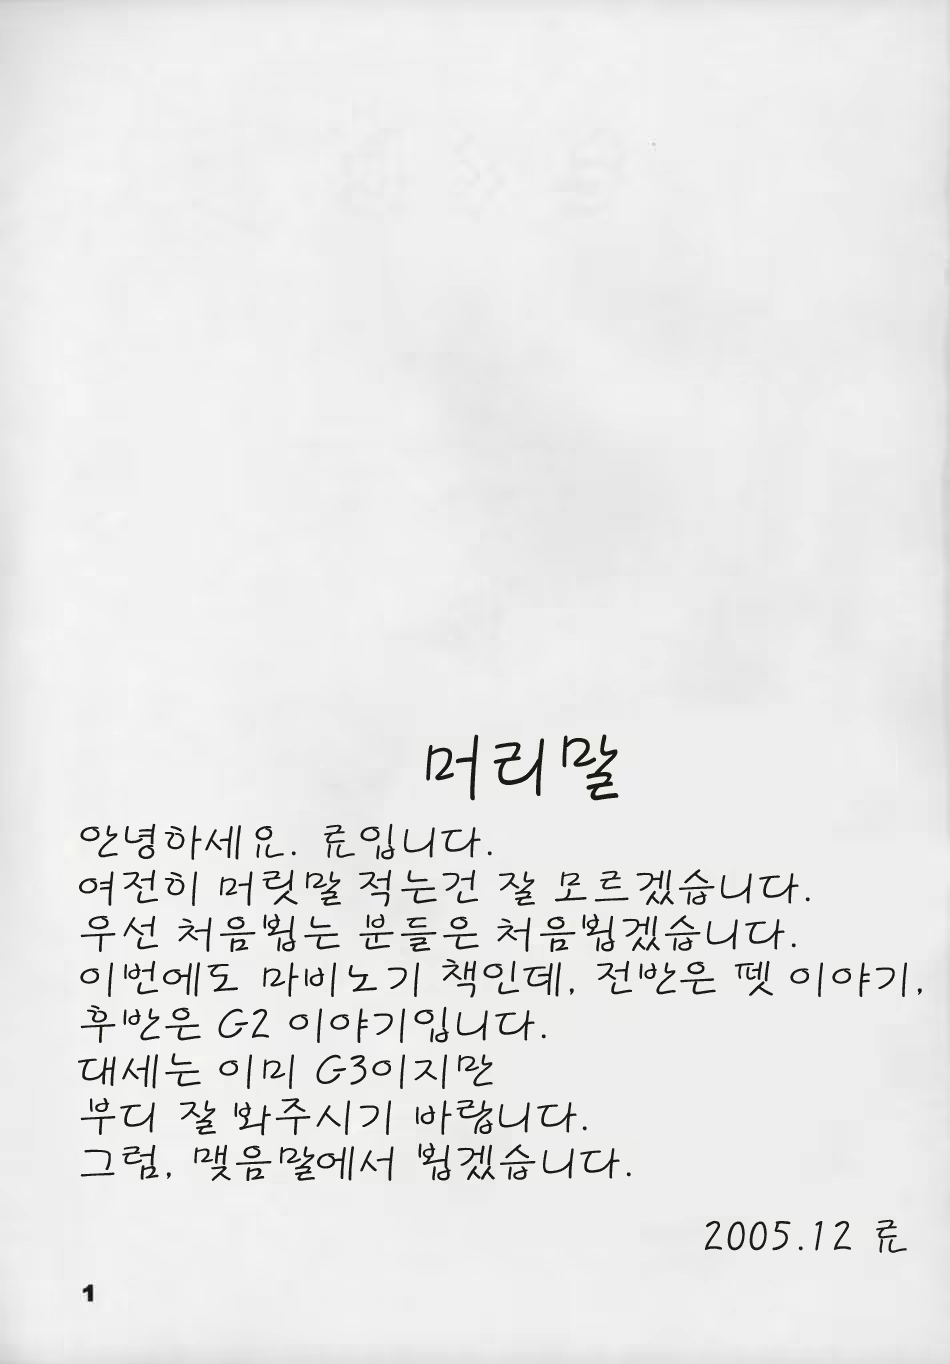 머리말
안녕하세요. 료입니다.
여전히 머릿말 적는건 잘 모르겠습니다.
우선 처음뵙는 분들은 처음뵙겠습니다.
이번에도 마비노기 책인데, 전반은 펫 이야기,
후반은 G2 이야기입니다.
대세는 이미 G3이지만
부디 잘 봐주시기 바랍니다.
그럼, 맺음말에서 뵙겠습니다.
2005.12 료
1